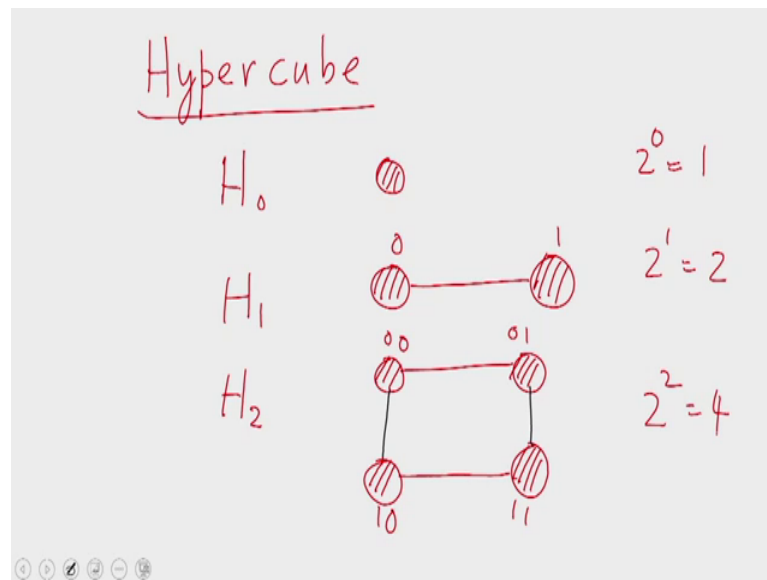 Hypercube
H₀ 2⁰ = 1
0 1
H₁ 2¹ = 2
00 01
H₂ 2² = 4
10 11